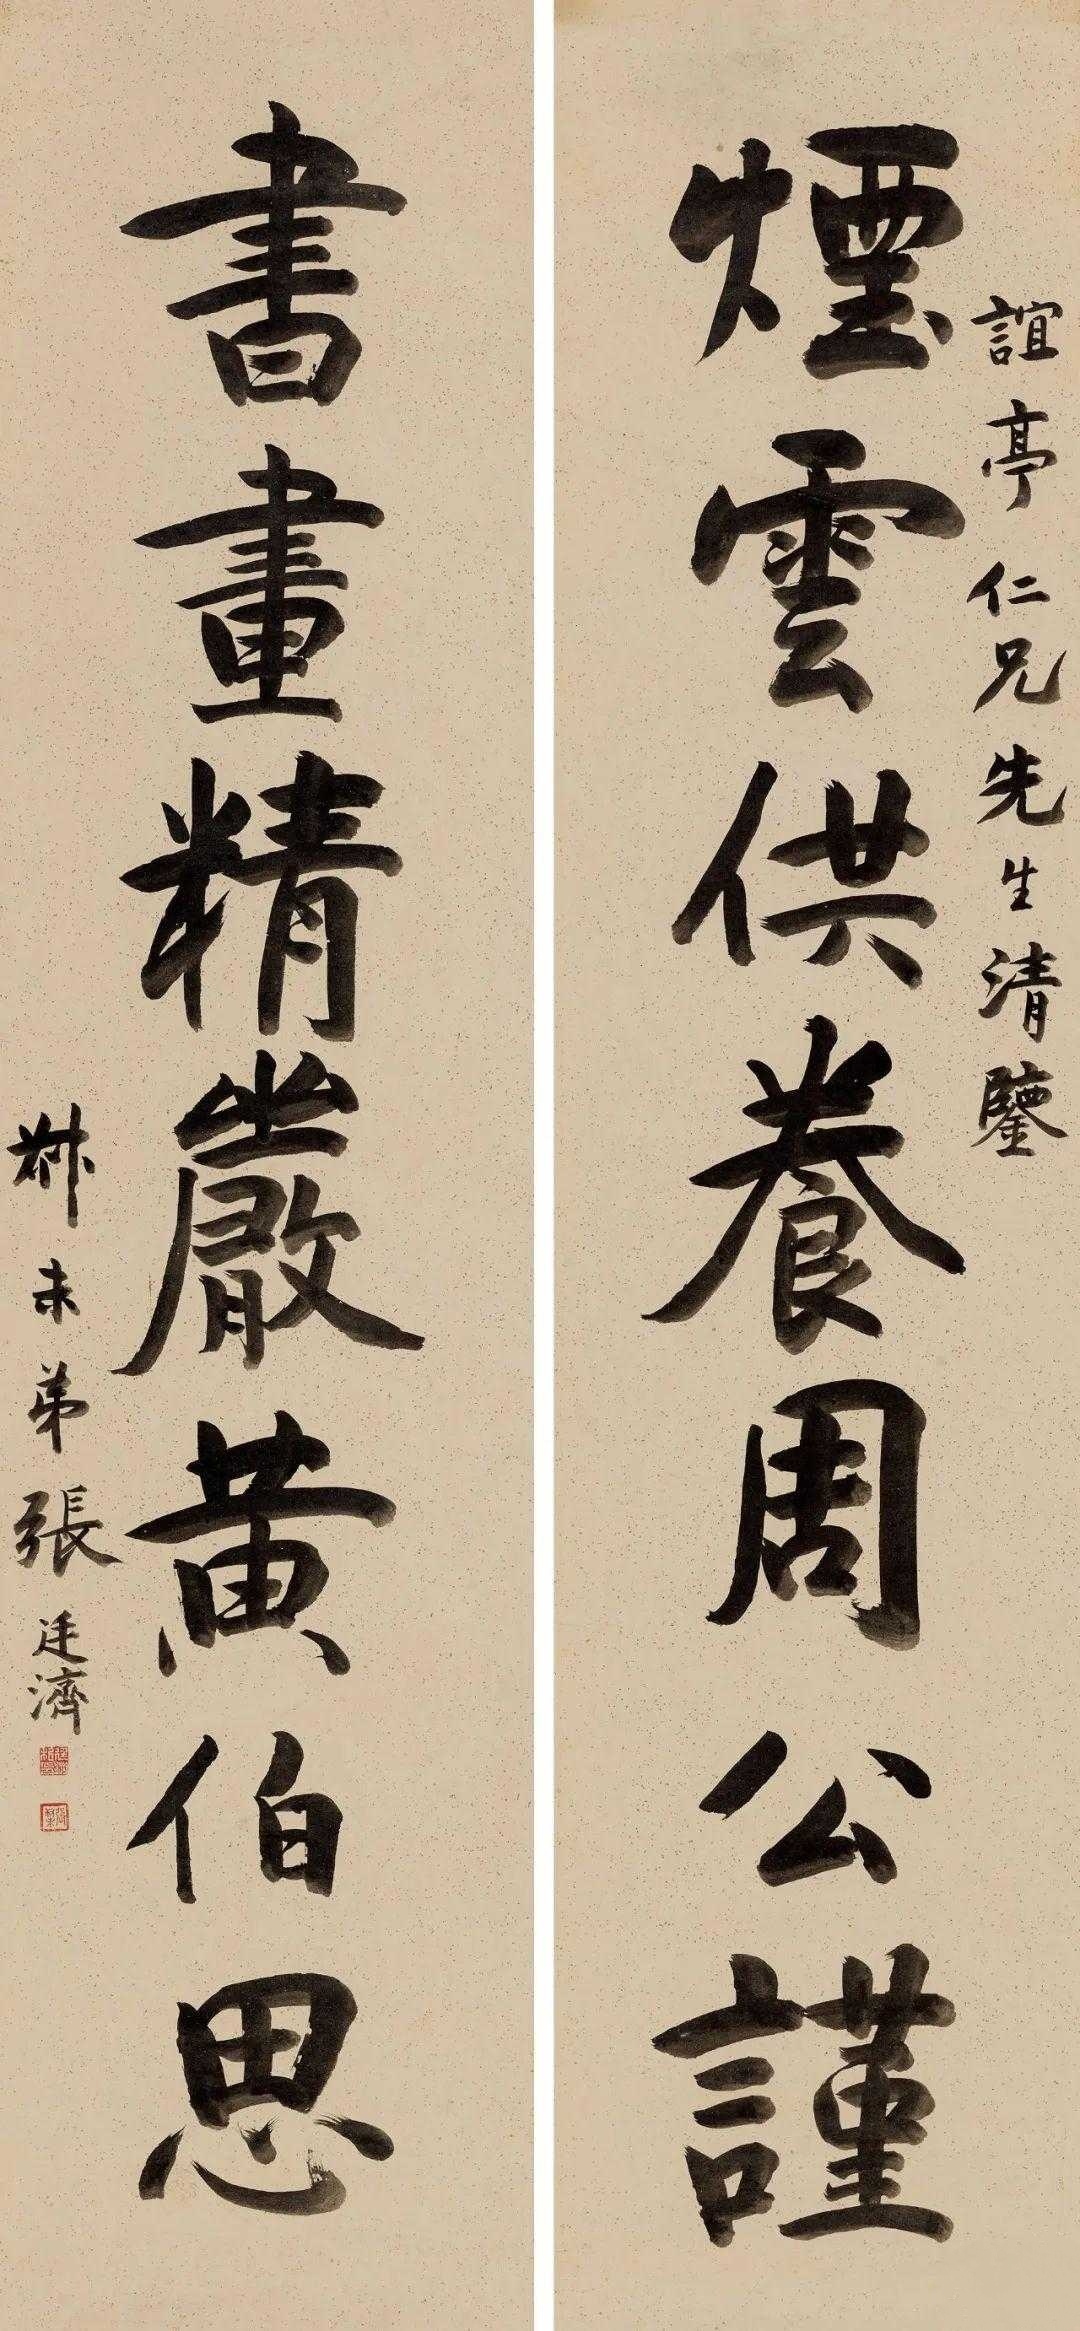 誼亭仁兄先生清鑒
煙雲供養周公謹
書畫精嚴黃伯思
尗未弟張廷濟